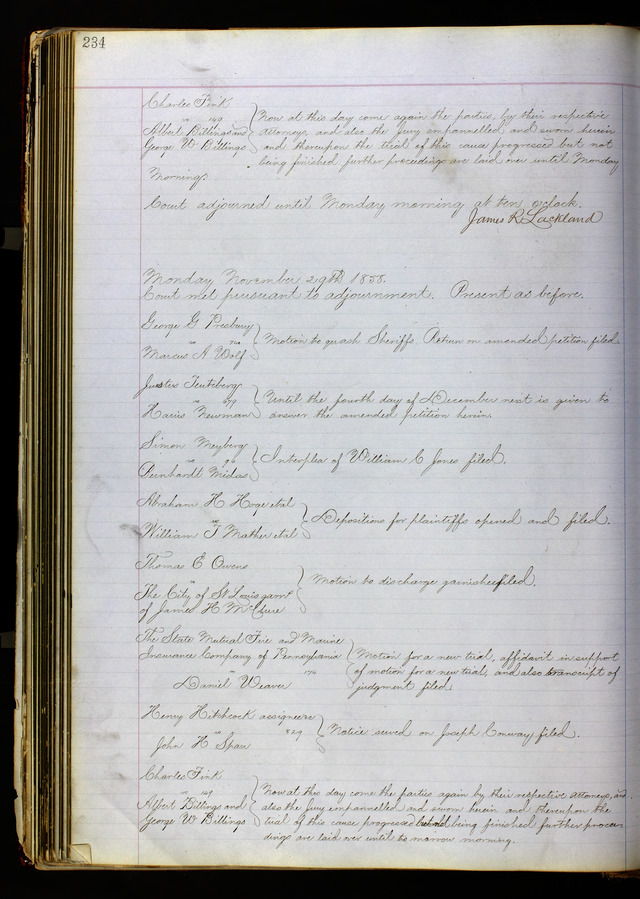 234
Charles Fink
vs 149
Albert Billings and
George W. Billings
Now at this day come again the parties, by their respective
attorneys, and also the Jury empannelled and sworn herein
and thereupon the trial of this cause progressed but not
being finished further proceedings are laid over until Monday
Morning.
Court adjourned until Monday morning at ten o'clock.
James R. Lackland
Monday November 29th 1858.
Court met pursuant to adjournment. Present as before.
George G Presbury
vs
Marcus A Wolf
Motion to quash Sheriffs Return on amended petition filed
vs
Harris Newman
Until the fourth day of December next is given to
answer the amended petition herein.
Simon Meyberg
vs
Bernhardt Midas
Interplea of William C Jones filed.
Abraham H Hoge et al
vs
William T Mather et al
Depositions for plaintiffs opened and filed.
Thomas E Owens
vs
The City of St Louis garnt
of James H McClure
Motion to discharge garnishee filed.
The State Mutual Fire and Marine
Insurance Company of Pennsylvania
Daniel Weaver
Motion for a new trial, affidavit in support
of motion for a new trial, and also transcript of
judgment filed
Henry Hitchcock assignee
vs 829
John H Shaw
Notice served on Joseph Conway filed.
Charles Fink
vs 149
Albert Billings and
George W. Billings
Now at this day come the parties again by their respective attorneys, and
also the Jury empannelled and sworn herein and thereupon the
trial of this cause progressed but not being finished further procee-
dings are laid over until to morrow morning.